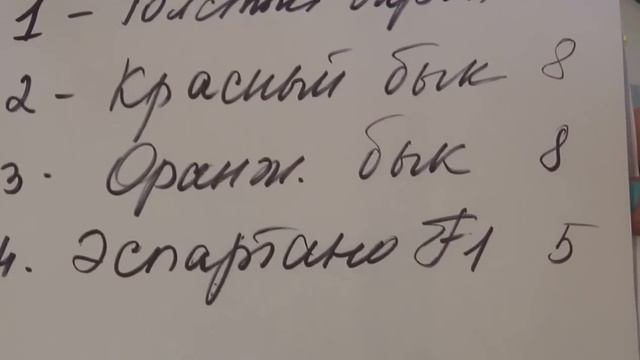 1 - Толстый
2 - Красный бык 8
3. Оранж. бык 8
4. Эспартано F1 5